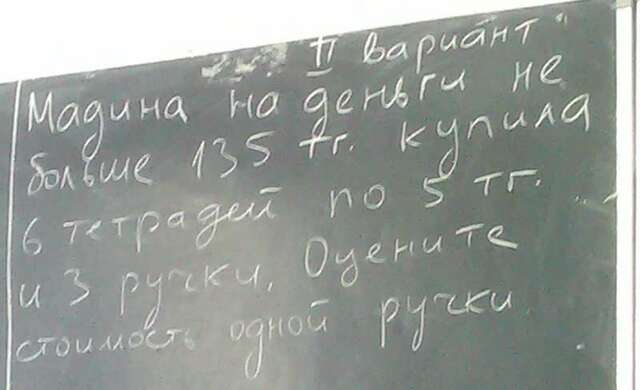 II вариант
Мадина на деньги не
больше 135 тг. купила
6 тетрадей по 5 тг.
и 3 ручки. Оцените
стоимость одной ручки